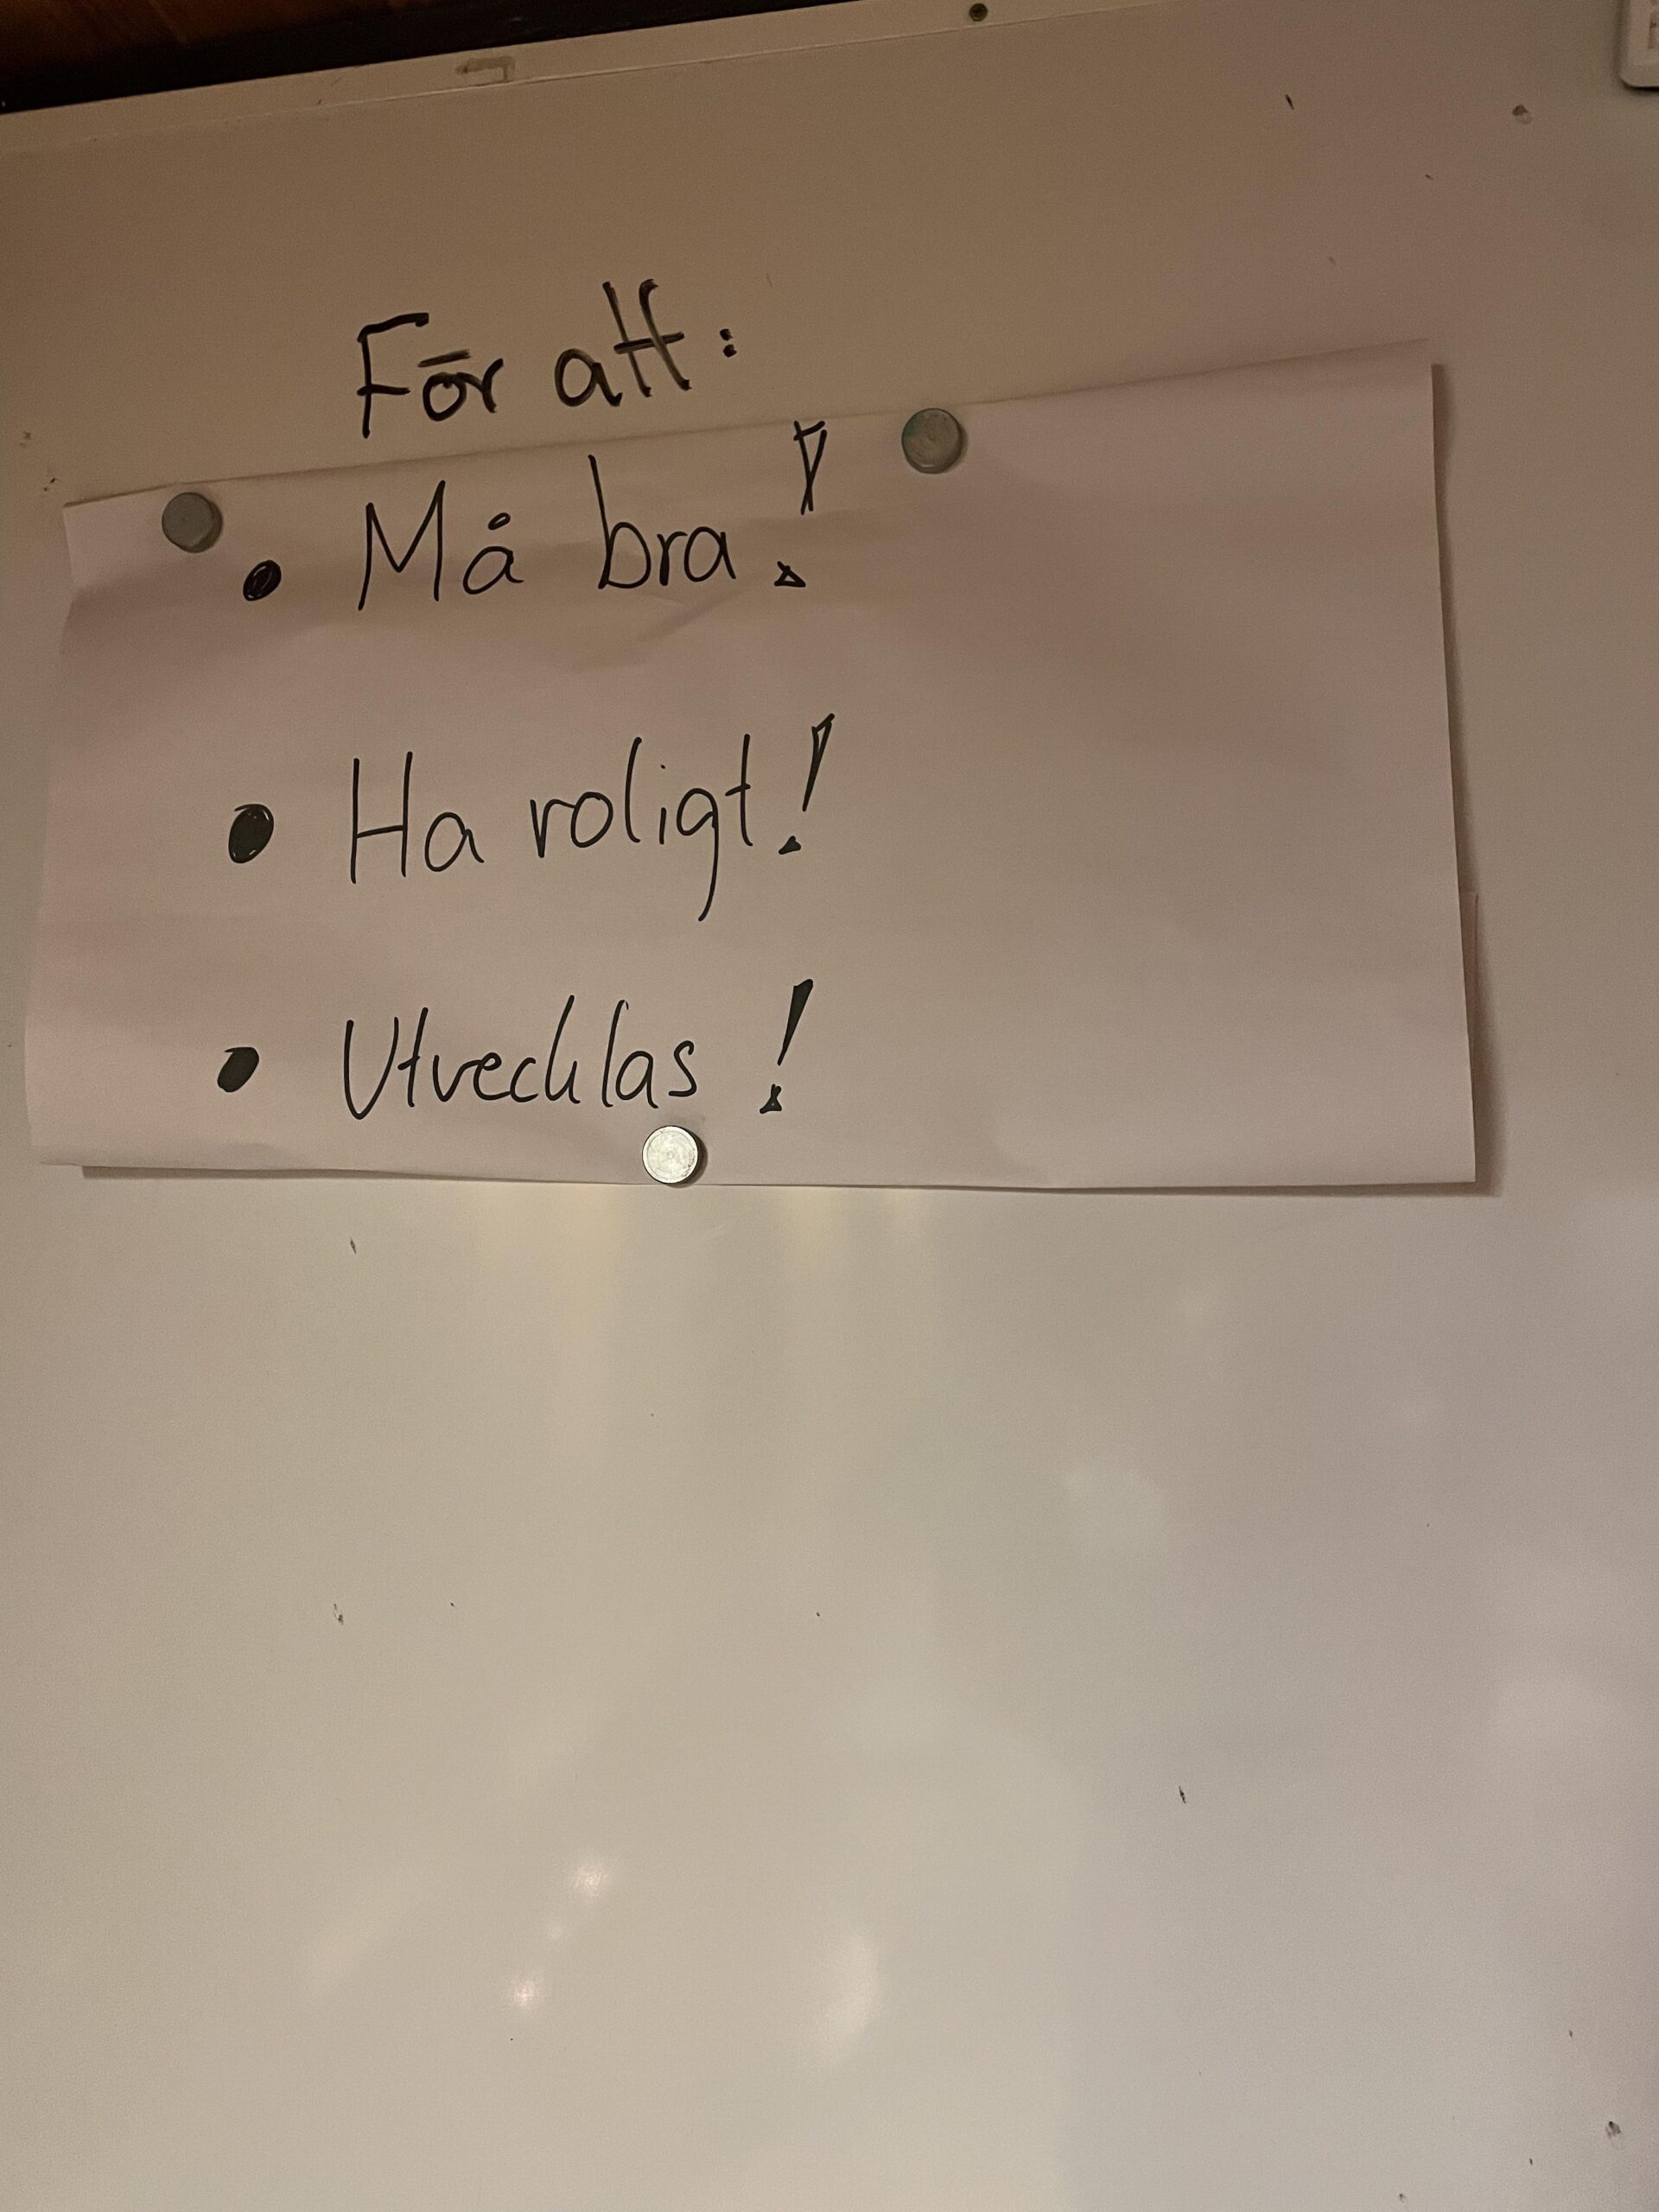 För att:
• Må bra!
• Ha roligt!
• Utvecklas!